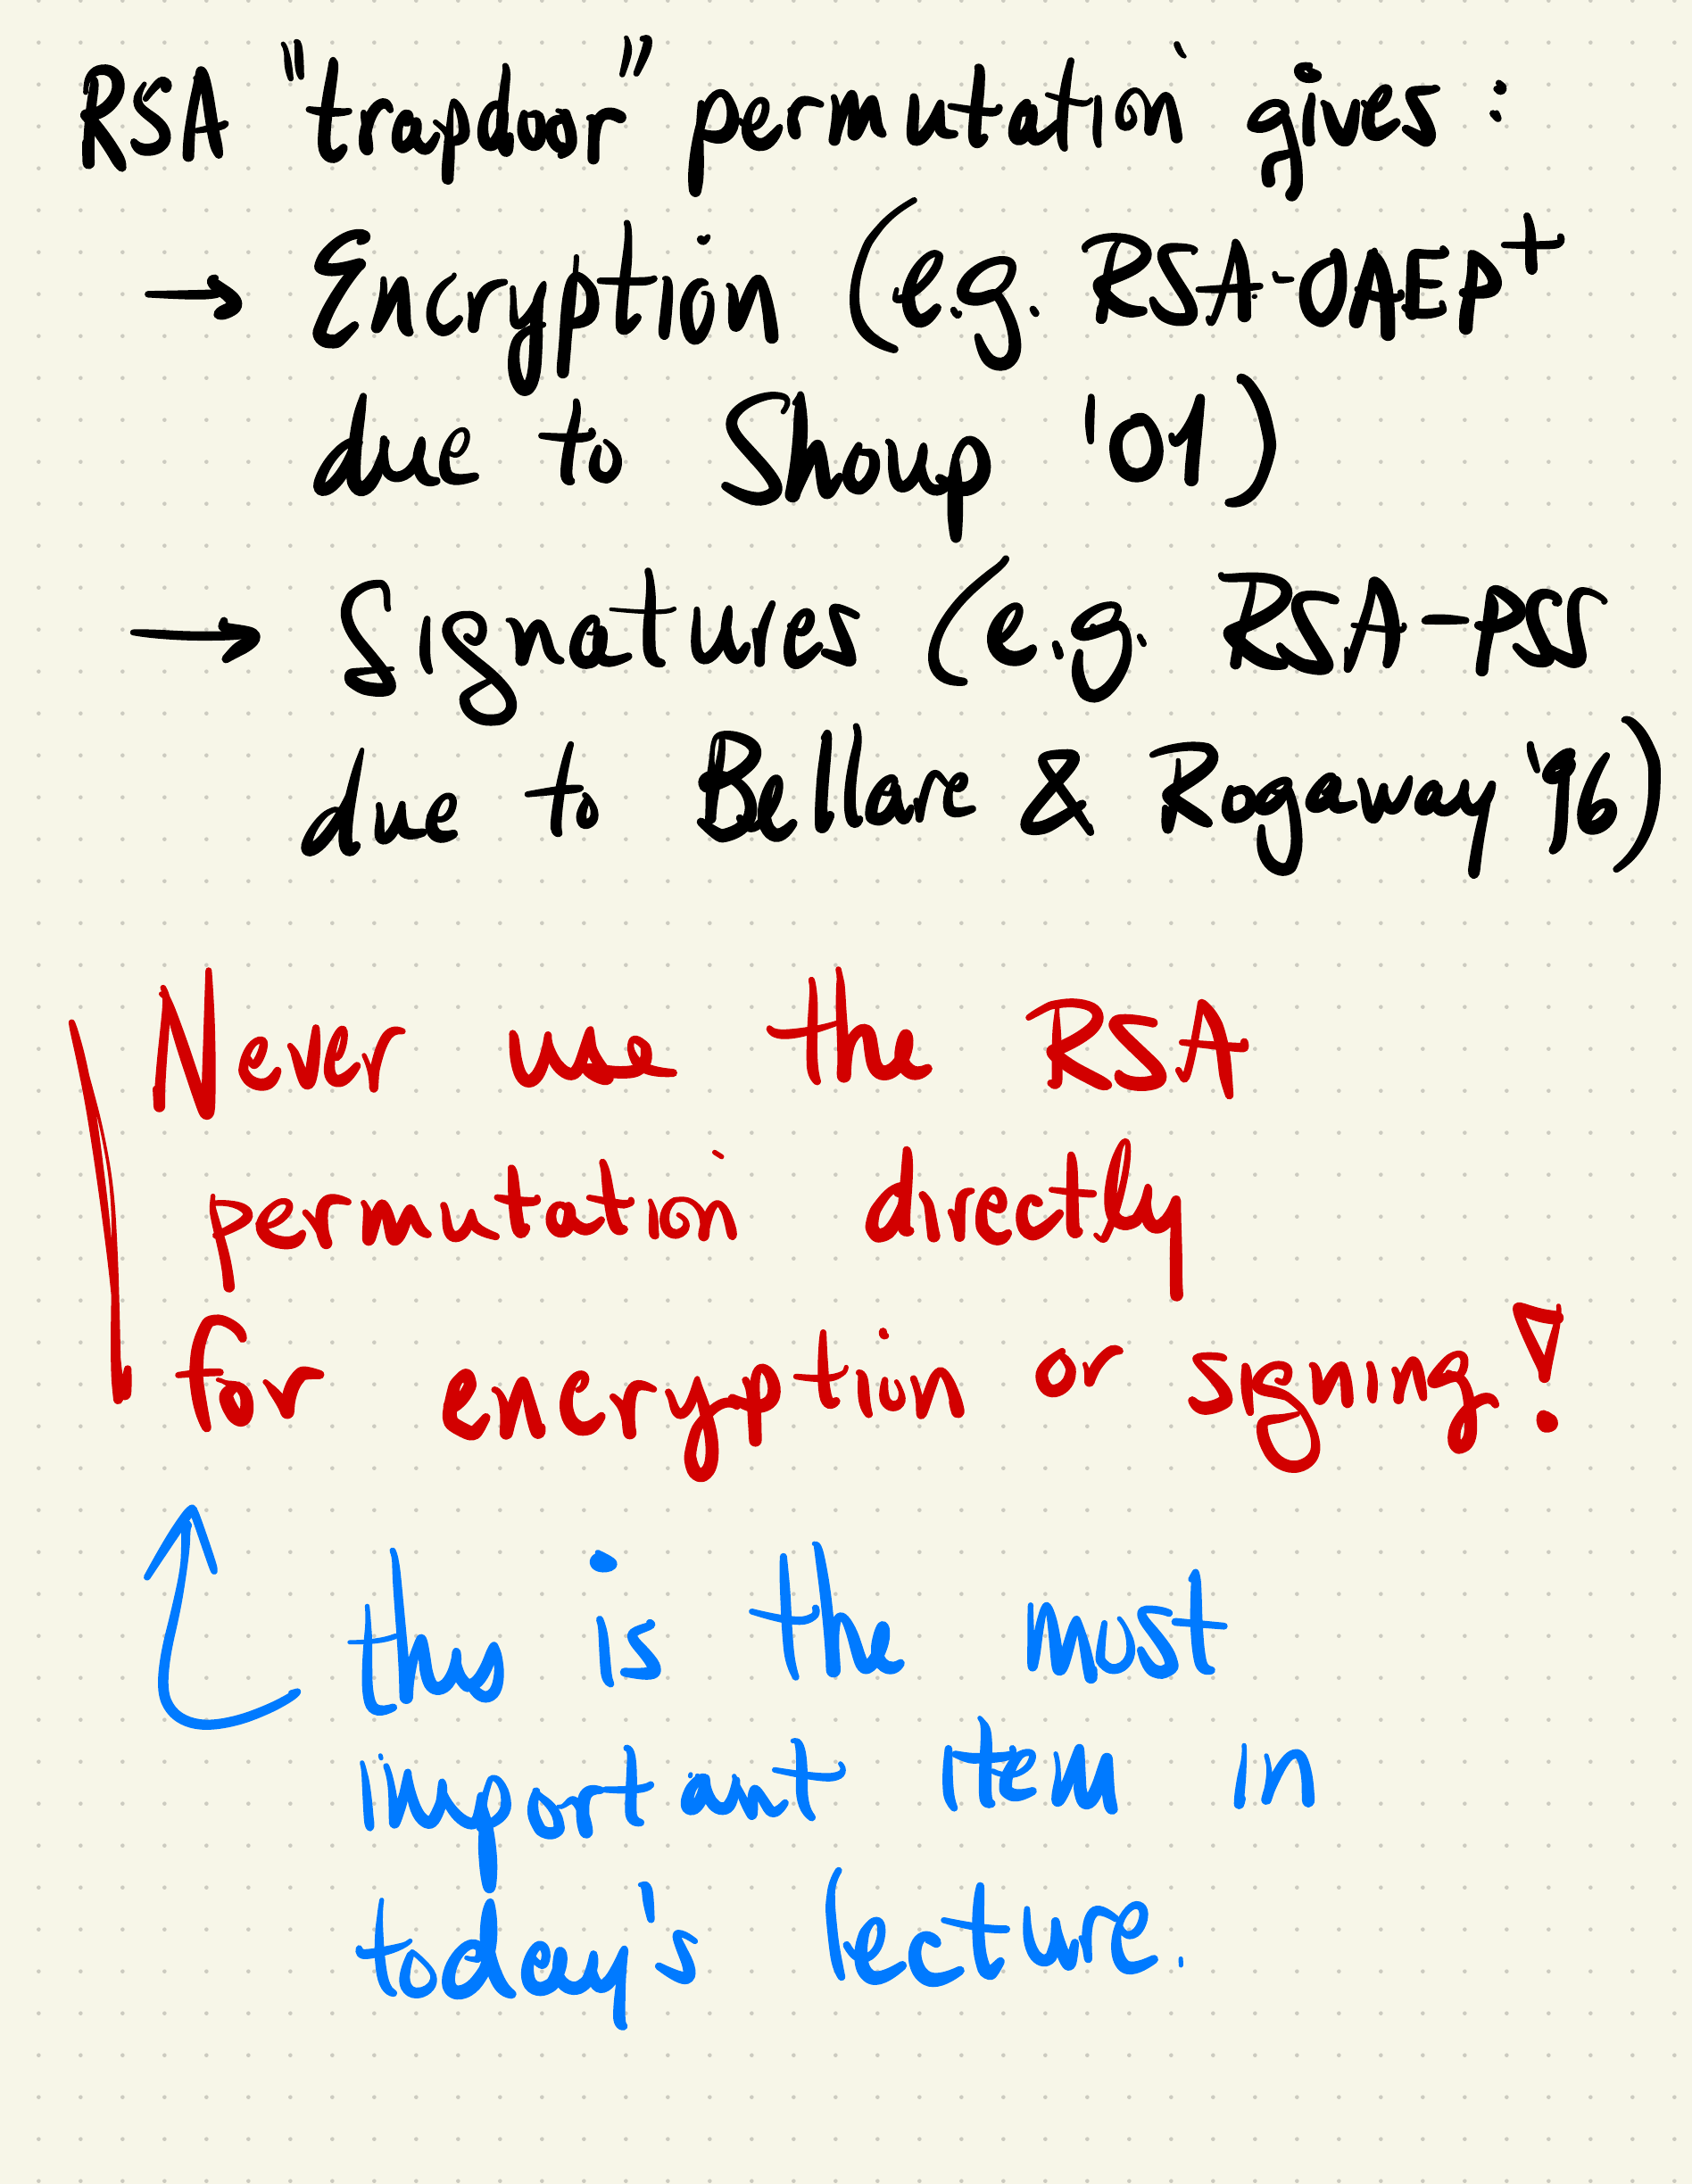 RSA "trapdoor" permutation gives:
→ Encryption (e.g. RSA-OAEP+
due to Shoup '01)
→ Signatures (e.g. RSA-PSS
due to Bellare & Rogaway '96)
Never use the RSA
permutation directly
for encryption or signing!
this is the most
important item in
today's lecture.